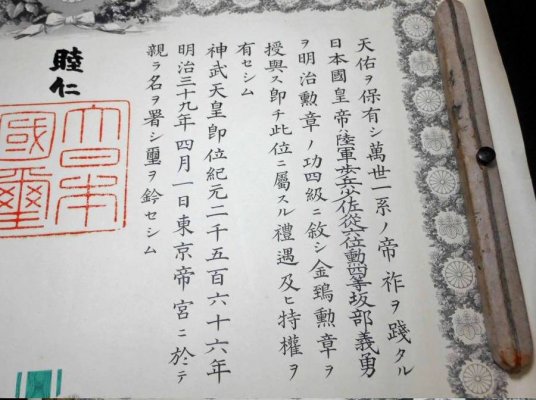 天佑ヲ保有シ萬世一系ノ帝祚ヲ踐タル
日本國皇帝ハ陸軍歩兵少佐從六位勳四等坂部義勇
ヲ明治勲章ノ功四級ニ敍シ金鵄勲章ヲ
授與ス即チ此位ニ屬スル禮遇及ヒ特權ヲ
有セシム
神武天皇即位紀元二千五百六十六年
明治三十九年四月一日東京帝宮ニ於テ
親ラ名ヲ署シ璽ヲ鈐セシム
睦仁
大日本
國璽